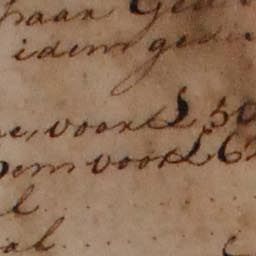 haar Ged
idem gede
e, voor £ 50
em voor £ 6
l
al